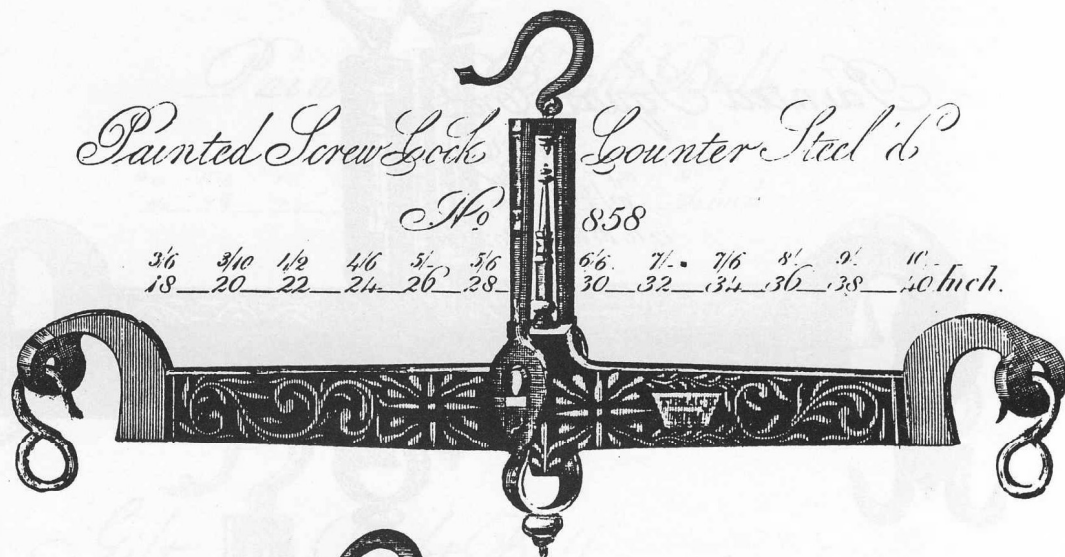 Painted Screw Lock Counter Steel'd
No 858
3/6 3/10 4/2 4/6 5/- 5/6 6/6 7/- 7/6 8/- 9/- 10/-
18 20 22 24 26 28 30 32 34 36 38 40 Inch.